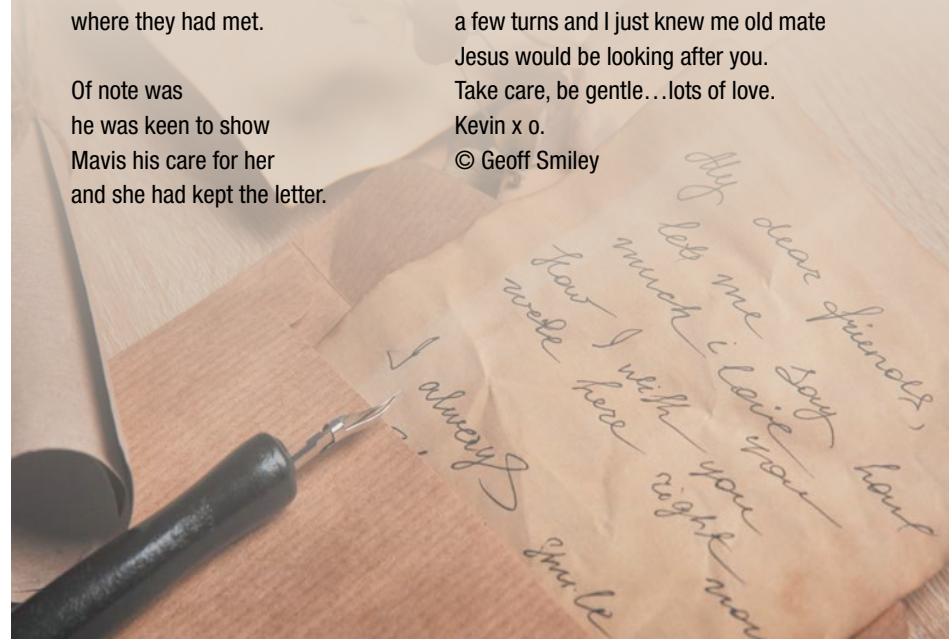 where they had met.
Of note was
he was keen to show
Mavis his care for her
and she had kept the letter.
a few turns and I just knew me old mate
Jesus would be looking after you.
Take care, be gentle…lots of love.
Kevin x o.
© Geoff Smiley
My dear friends,
let me say how
much i love you
how I wish you
were here right now
I always
smile